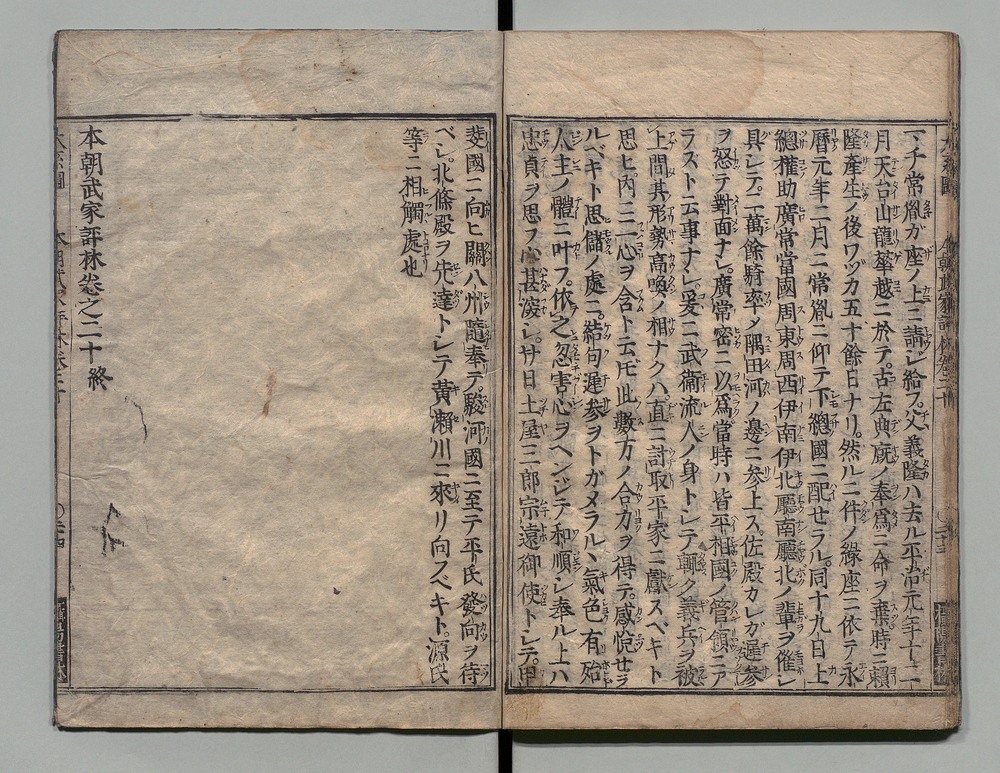 マチ常胤ガ座ノ上ニ請シ給フ。父義隆ハ去ル平常元年十二
月天台山龍華越ニ於テ。古左典廐ノ奉爲ニ命ヲ棄時ニ賴
隆產生ノ後ワヅカ五十餘日ナリ。然ルニ件ノ緣座ニ依テ永
曆元年二月ニ常胤ニ仰テ下總國ニ配せラル。同十九日上
總權助廣常當國周東周西伊南伊北廳南廳北ノ輩ヲ催シ
具シテ。二萬餘騎率メ隅田河ノ邊ニ参上ス。佐殿カレガ遲参
ヲ怒テ對面ナシ。廣常密ニ以爲當時ハ皆平相國ノ管領ニア
ラスト云事ナシ。爰ニ武衞流人ノ身トシテ輒ク義兵ヲ被
上間其形勢高喚ノ相ナクハ直ニ討取平家ニ獻スベキト
思ヒ。内ニ二心ヲ含ト云𪜈此數万ノ合力ヲ得テ。感悅せラ
ルベキト思儲ノ處ニ。結句遲参ヲトガメラルヽ氣色有殆
人主ノ體ニ叶フ。依之忽害心ヲヘンジテ和順シ奉ル上ハ
忠貞ヲ思フ心甚深シ。サ日土屋三郎宗遠御使トシテ。甲
斐國ニ向ヒ關八州隨奉テ。駿河國ニ至テ平氏發向ヲ待
ベシ。北條殿ヲ先達トシテ黄瀬川ニ來リ向フベキト。源氏
等ニ相觸處也
本朝武家評林卷之二十終